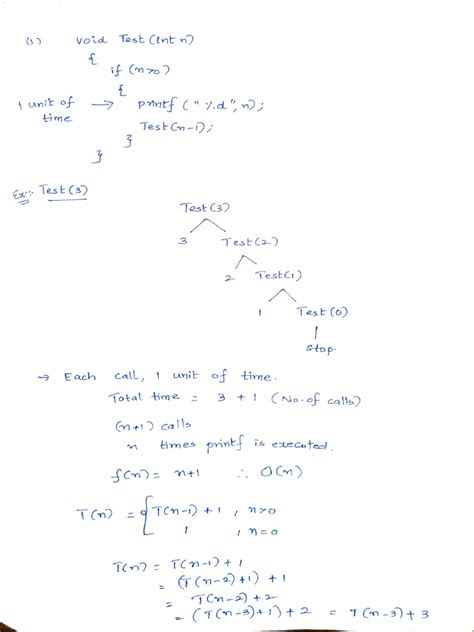 (1) void Test (int n)
{
if (n>0)
{
1 unit of time → printf ("%d", n);
Test(n-1);
}
}
Ex:- Test(3)
Test(3)
3 Test(2)
2 Test(1)
1 Test(0)
stop.
→ Each call, 1 unit of time.
Total time = 3 + 1 (No. of calls)
(n+1) calls
n times printf is executed.
f(n) = n+1 ∴ O(n)
T(n) = { T(n-1) + 1 , n>0
1 , n=0
T(n) = T(n-1) + 1
= (T(n-2)+1) + 1
= T(n-2) + 2
= (T(n-3)+1) + 2 = T(n-3) + 3